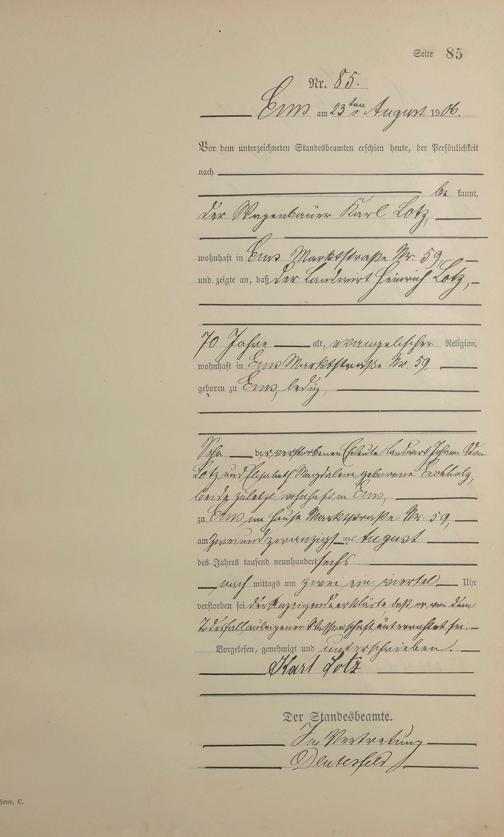 Seite 85
Nr. 85.
Ems am 23ten August 1906.
Vor dem unterzeichneten Standesbeamten erschien heute, der Persönlichkeit
nach
be kannt,
der Wagenbauer Karl Lotz,
wohnhaft in Ems Marktstraße Nr. 59,
und zeigte an, daß der Landwirt Heinrich Lotz,
70 Jahre alt, evangelischer Religion,
wohnhaft in Ems Marktstraße Nr. 59
geboren zu Ems, ledig,
Sohn der verstorbenen Eheleute Landwirt Johann Adam
Lotz und Elisabeth Magdalena geborene
beide zuletzt wohnhaft in Ems,
zu Ems im Hause Marktstraße Nr. 59,
am zweiundzwanzigsten August
des Jahres tausend neunhundert sechs
nach mittags um zwei ein viertel Uhr
verstorben sei, der Anzeigende erklärte, daß er von dem
Todesfall aus eigener Wissenschaft unterrichtet sei.
Vorgelesen, genehmigt und unterschrieben.
Karl Lotz
Der Standesbeamte.
In Vertretung
Form. C.